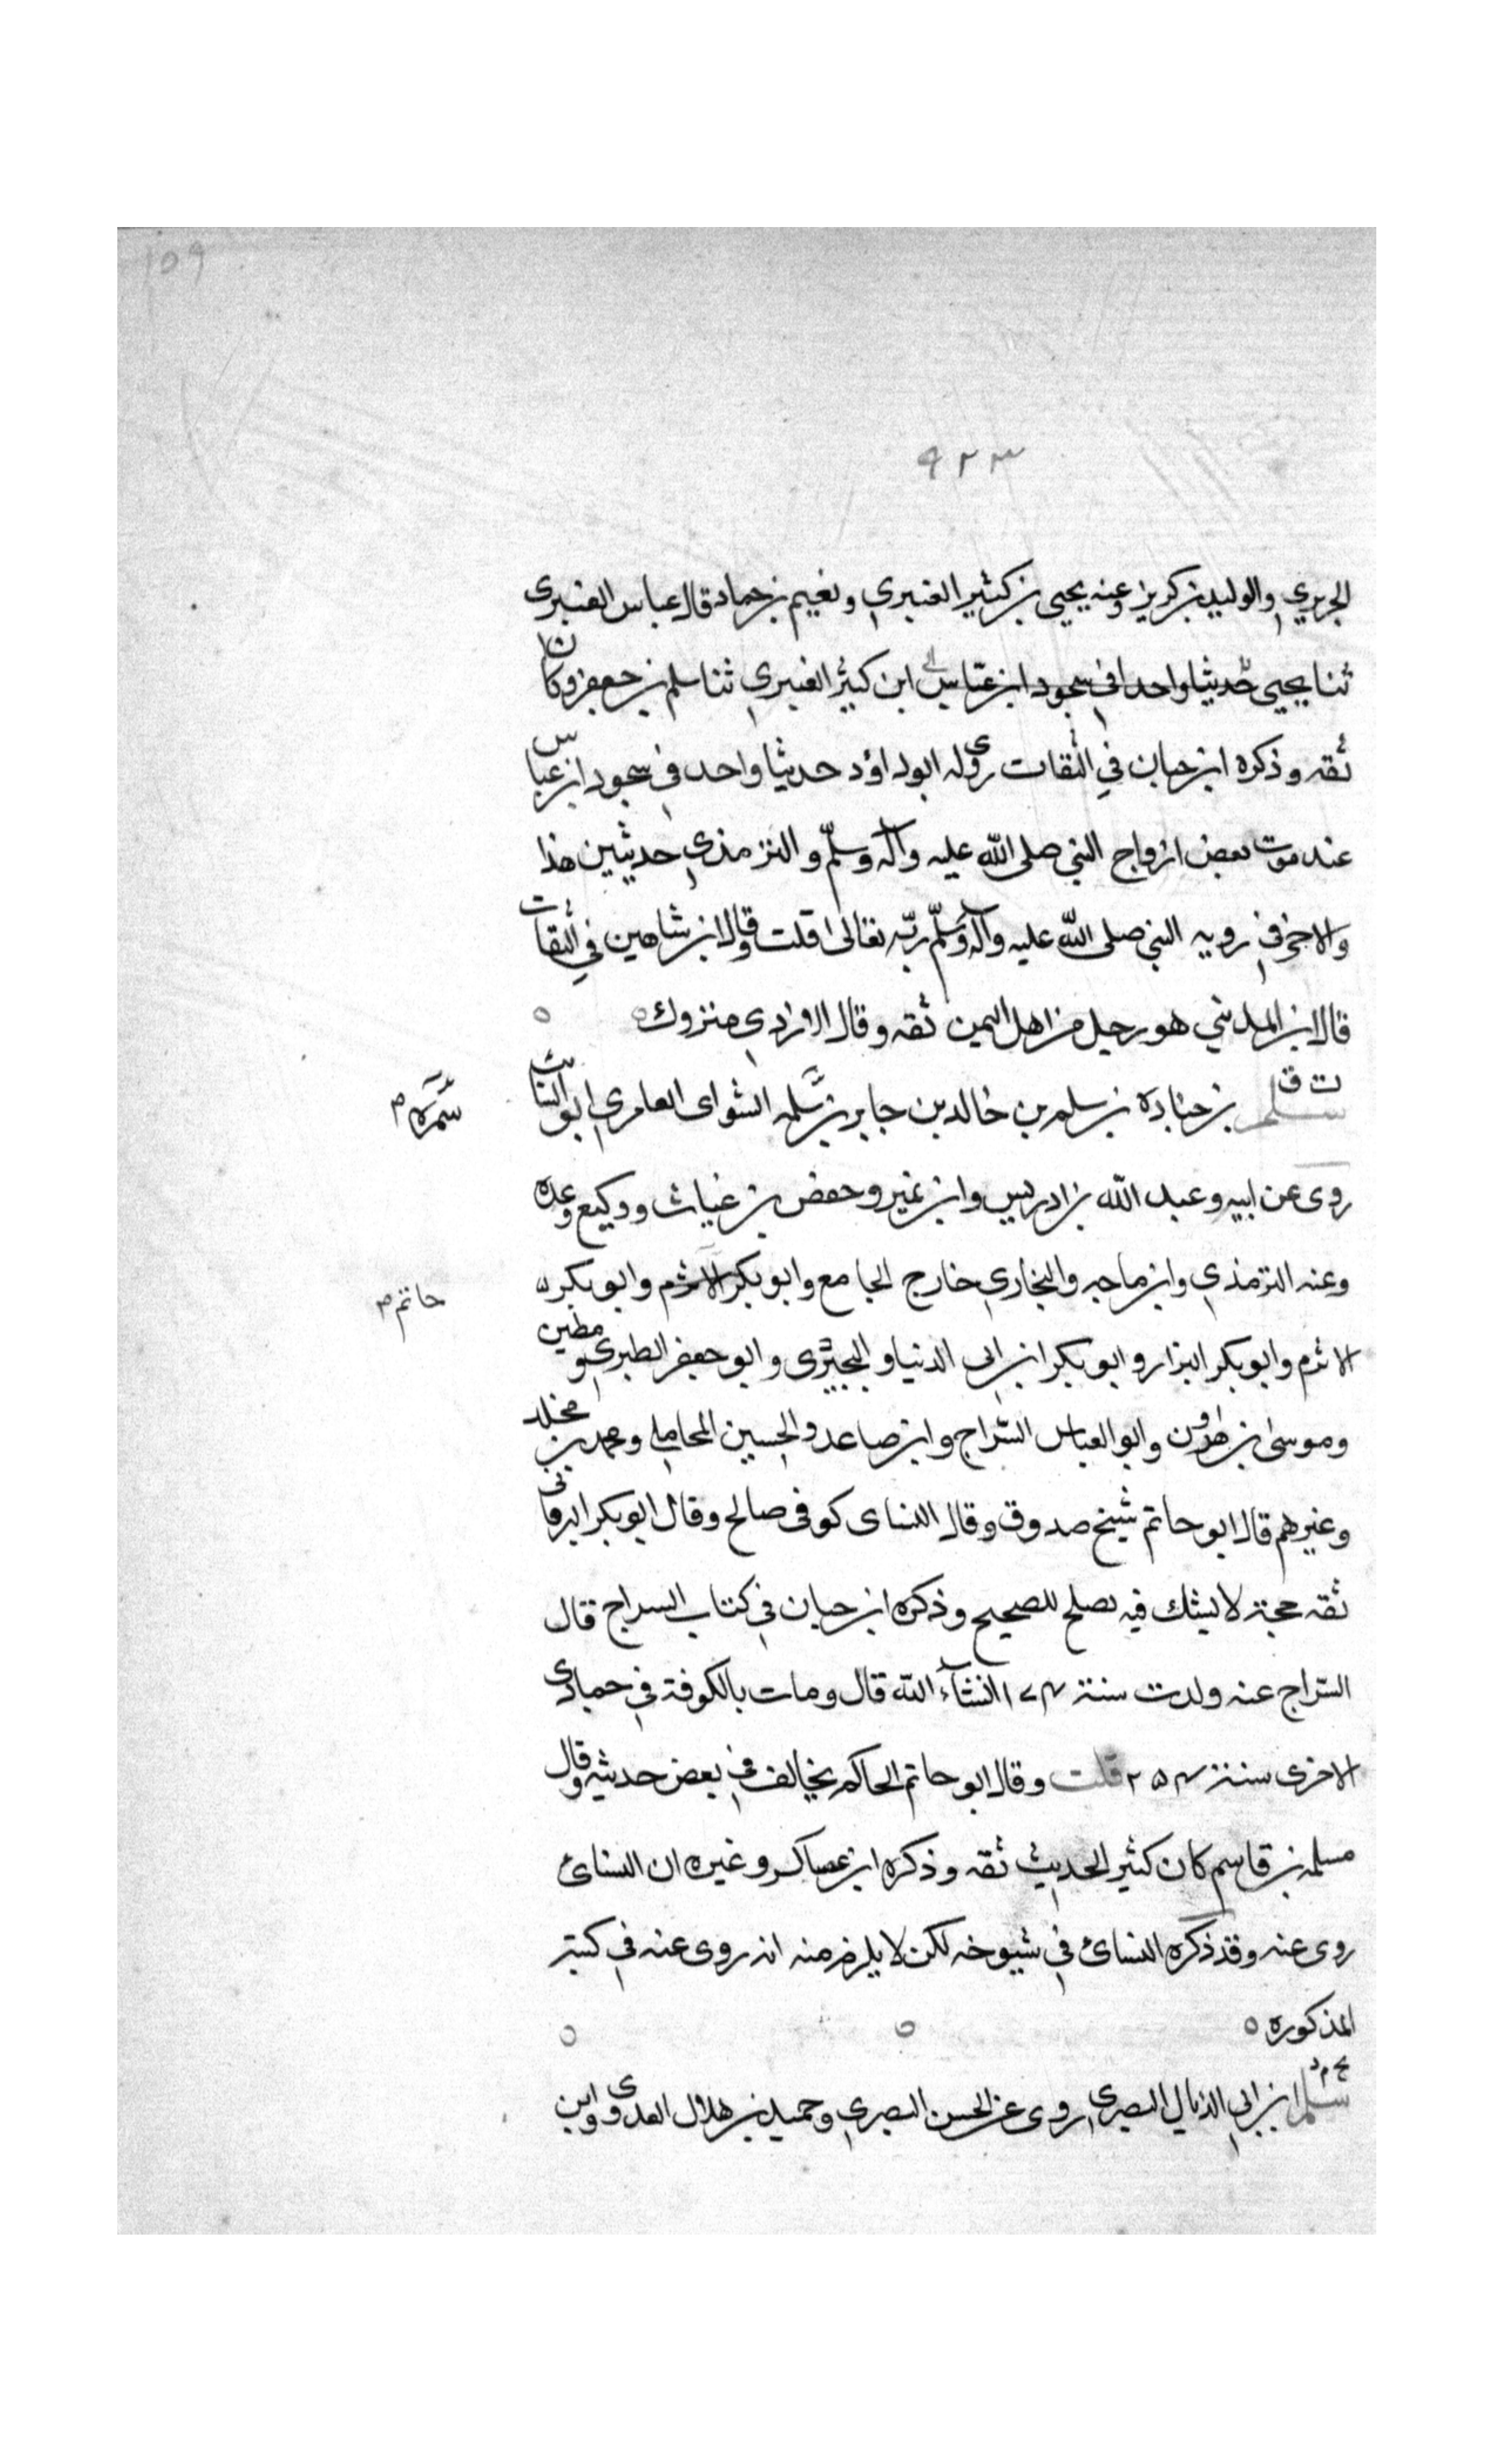 ١٥٩
٩٢٣
الجريري والوليد بن كريز وعنه يحيى بن كثير العنبري ونعيم بن حماد قال عباس العنبرى
ثنا يحيى حديثا واحدا في سجود ابن عباس ابن كثير العنبري ثنا سلم بن جعفر وكان
ثقه وذكره ابن حبان في الثقات روى له ابو داؤد حديثا واحد في سجود ابن عباس
عند موت بعض ازواج النبي صلى الله عليه وآله وسلّم والترمذي حديثين هذا
والاخر في رويه النبي صلى الله عليه وآله وسلّم ربّه تعالى قلت وقال ابن شاهين في الثقات
قال ابن المديني هو رجل من اهل اليمن ثقه وقال الازدي متروك
ت ق
سلم بن جنادة بن سلم بن خالد بن جابر بن سلمه السواى العامري ابو السائب
سَمُرَه م
روى عن ابيه وعبد الله بن ادريس وابن نمير وحفص بن غياث ووكيع وعده
وعنه الترمذي وابن ماجه والبخاري خارج الجامع وابو بكر الاثرم وابو بكر
حاتم م
الاثرم وابو بكر البزار وابو بكر ابن ابى الدنيا والبجيرى وابو جعفر الطبري ومطين
وموسى بن هارون وابو العباس السّراج وابن صاعد والحسين المحاملي ومحمد بن مخلد
وغيرهم قال ابو حاتم شيخ صدوق وقال النساى كوفى صالح وقال ابو بكر البرقانى
ثقه حجة لا يشك فيه يصلح للصحيح وذكره ابن حبان في كتاب السراج قال
السّراج عنه ولدت سنة ١٧٤ انشآء الله قال ومات بالكوفة في جمادى
الاخرى سنة ٢٥٤ قلت وقال ابو حاتم الحاكم يخالف في بعض حديثه وقال
مسلمه بن قاسم كان كثير الحديث ثقه وذكره ابن عساكر وغيره ان النسائ
روى عنه وقد ذكره النسائ في شيوخه لكن لا يلزم منه انه روى عنه في كتبه
المذكوره
سلم ابن ابي الذيال البصرى روى عن الحسن البصري وحميد بن هلال العدوى وابن